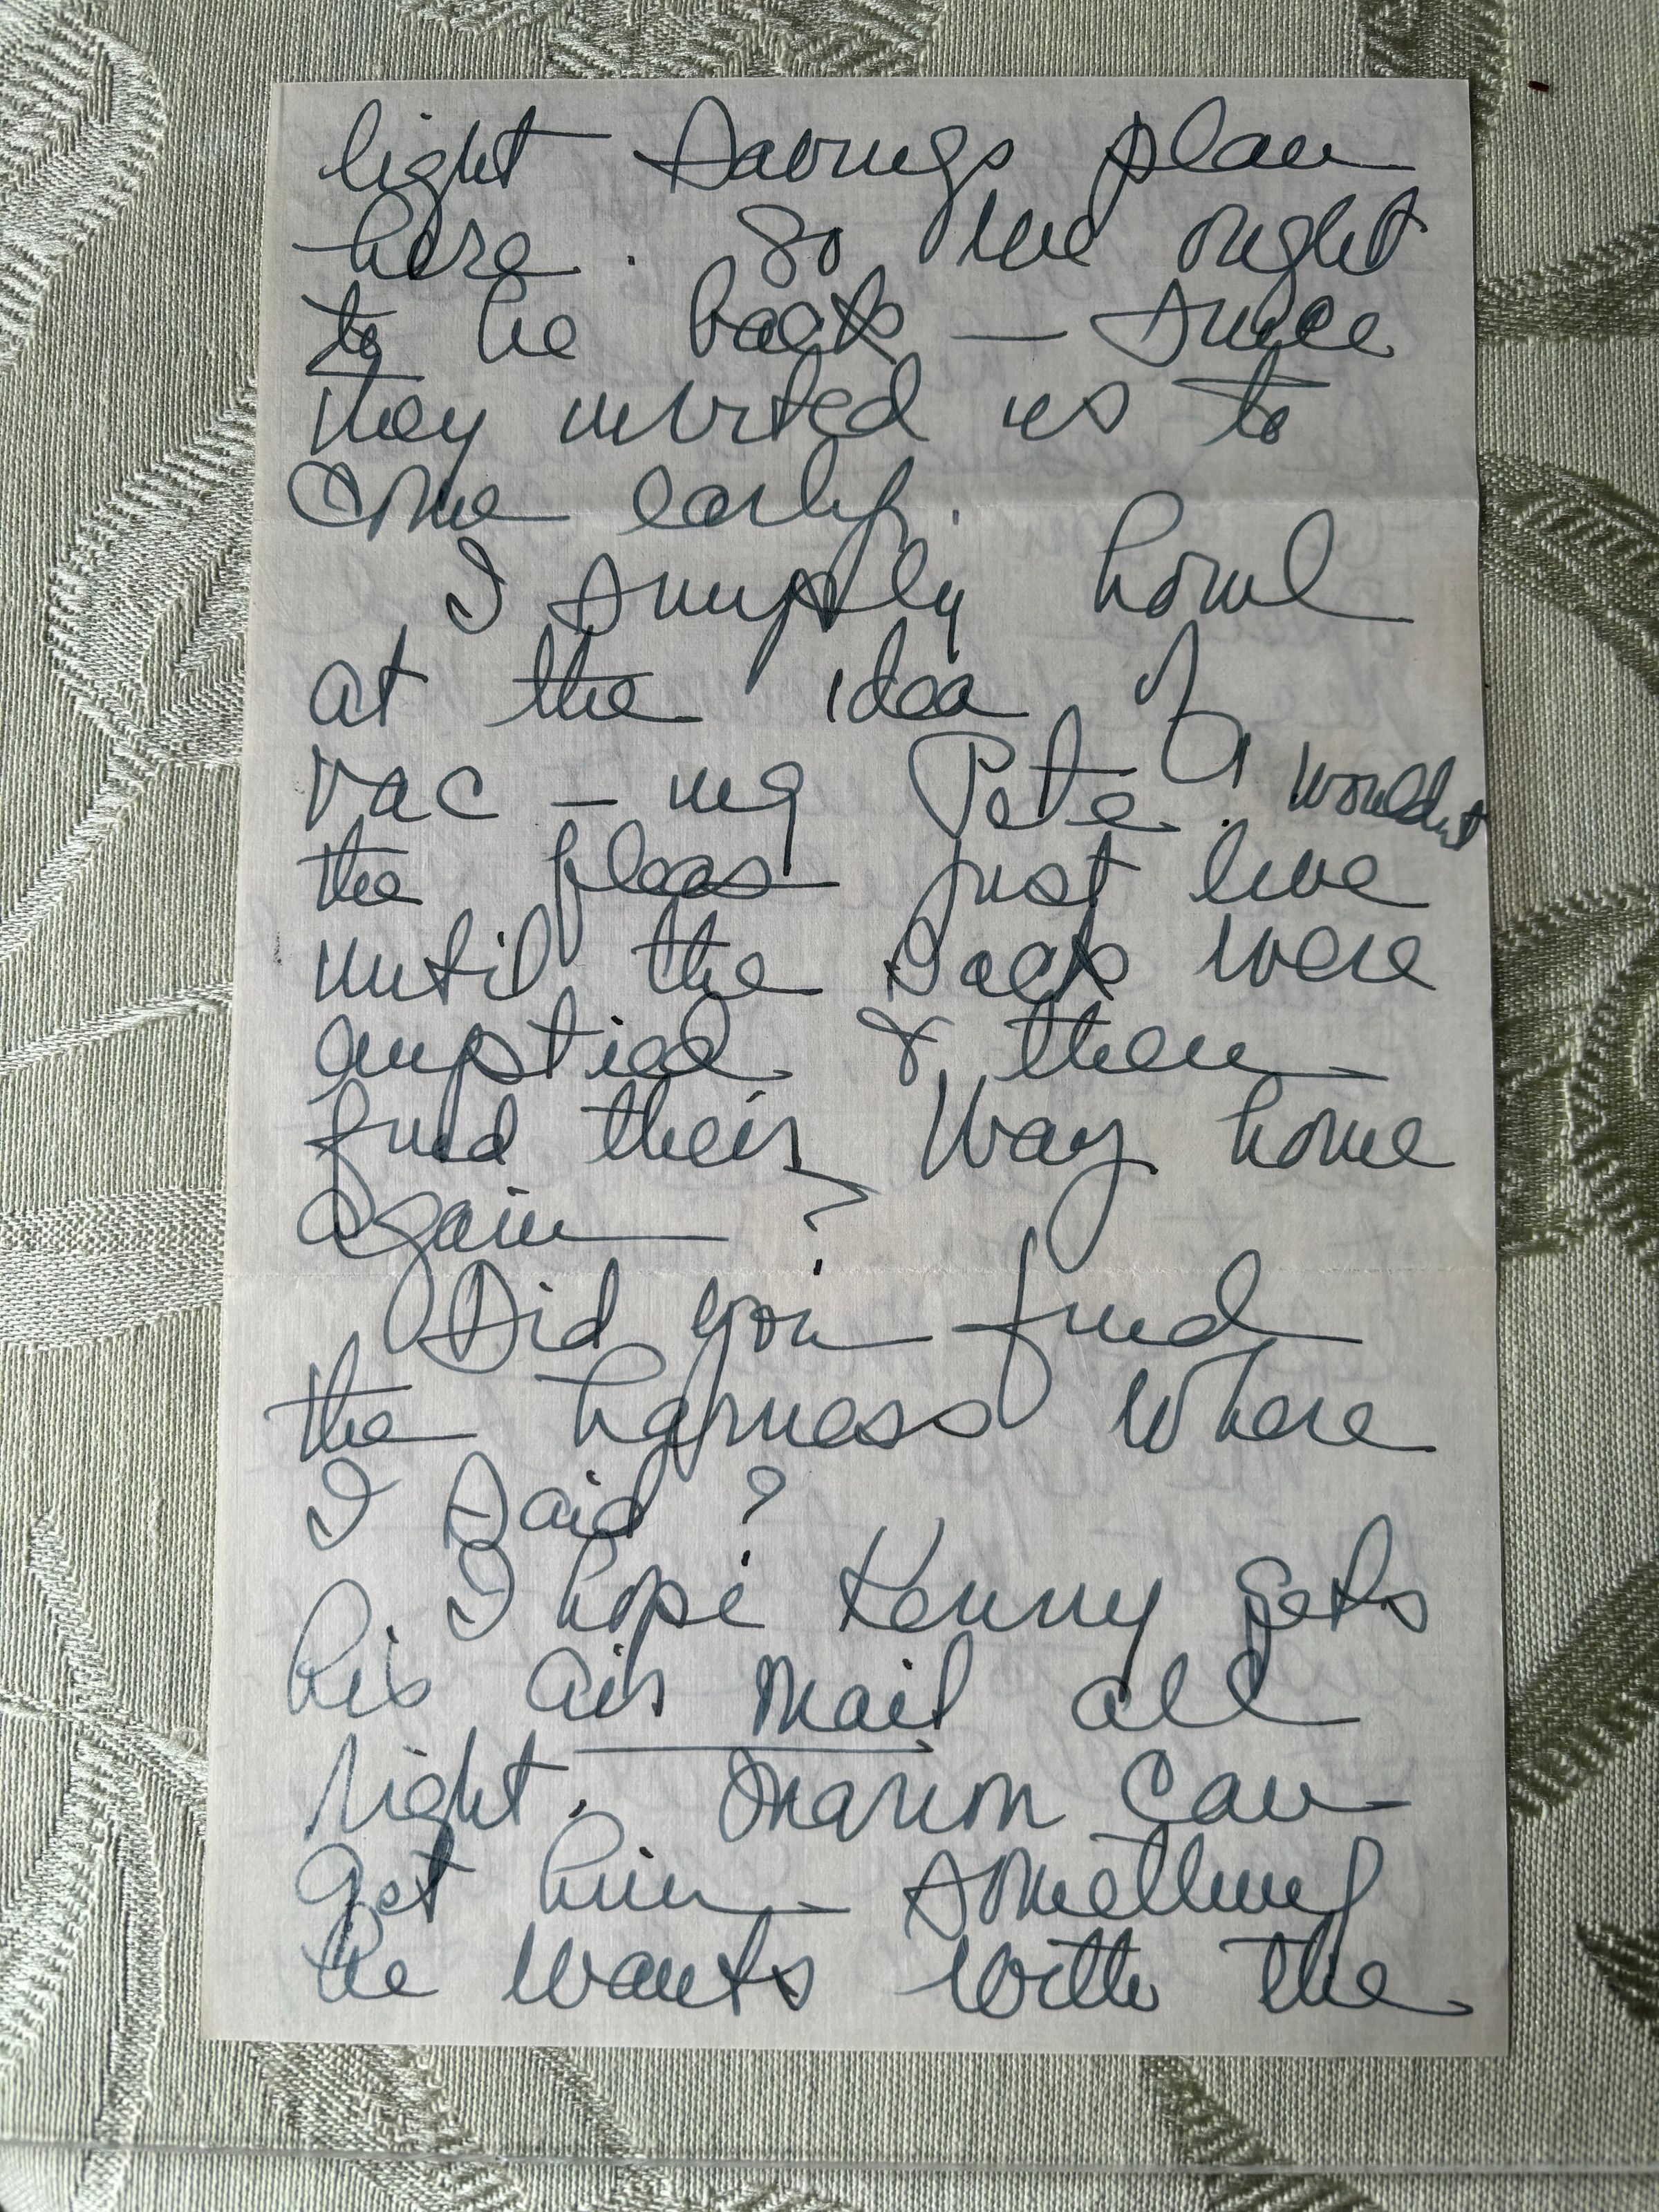 light savings plan
here. So we ought
to be back — since
they invited us to
come early.
I simply howl
at the idea of
vac-ing Pete. Wouldn't
the fleas just live
until the sack were
emptied & then
find their way home
again?
Did you find
the harness where
I said?
I hope Kenny gets
his air mail all
right. Marion can
get him something
he wants with the